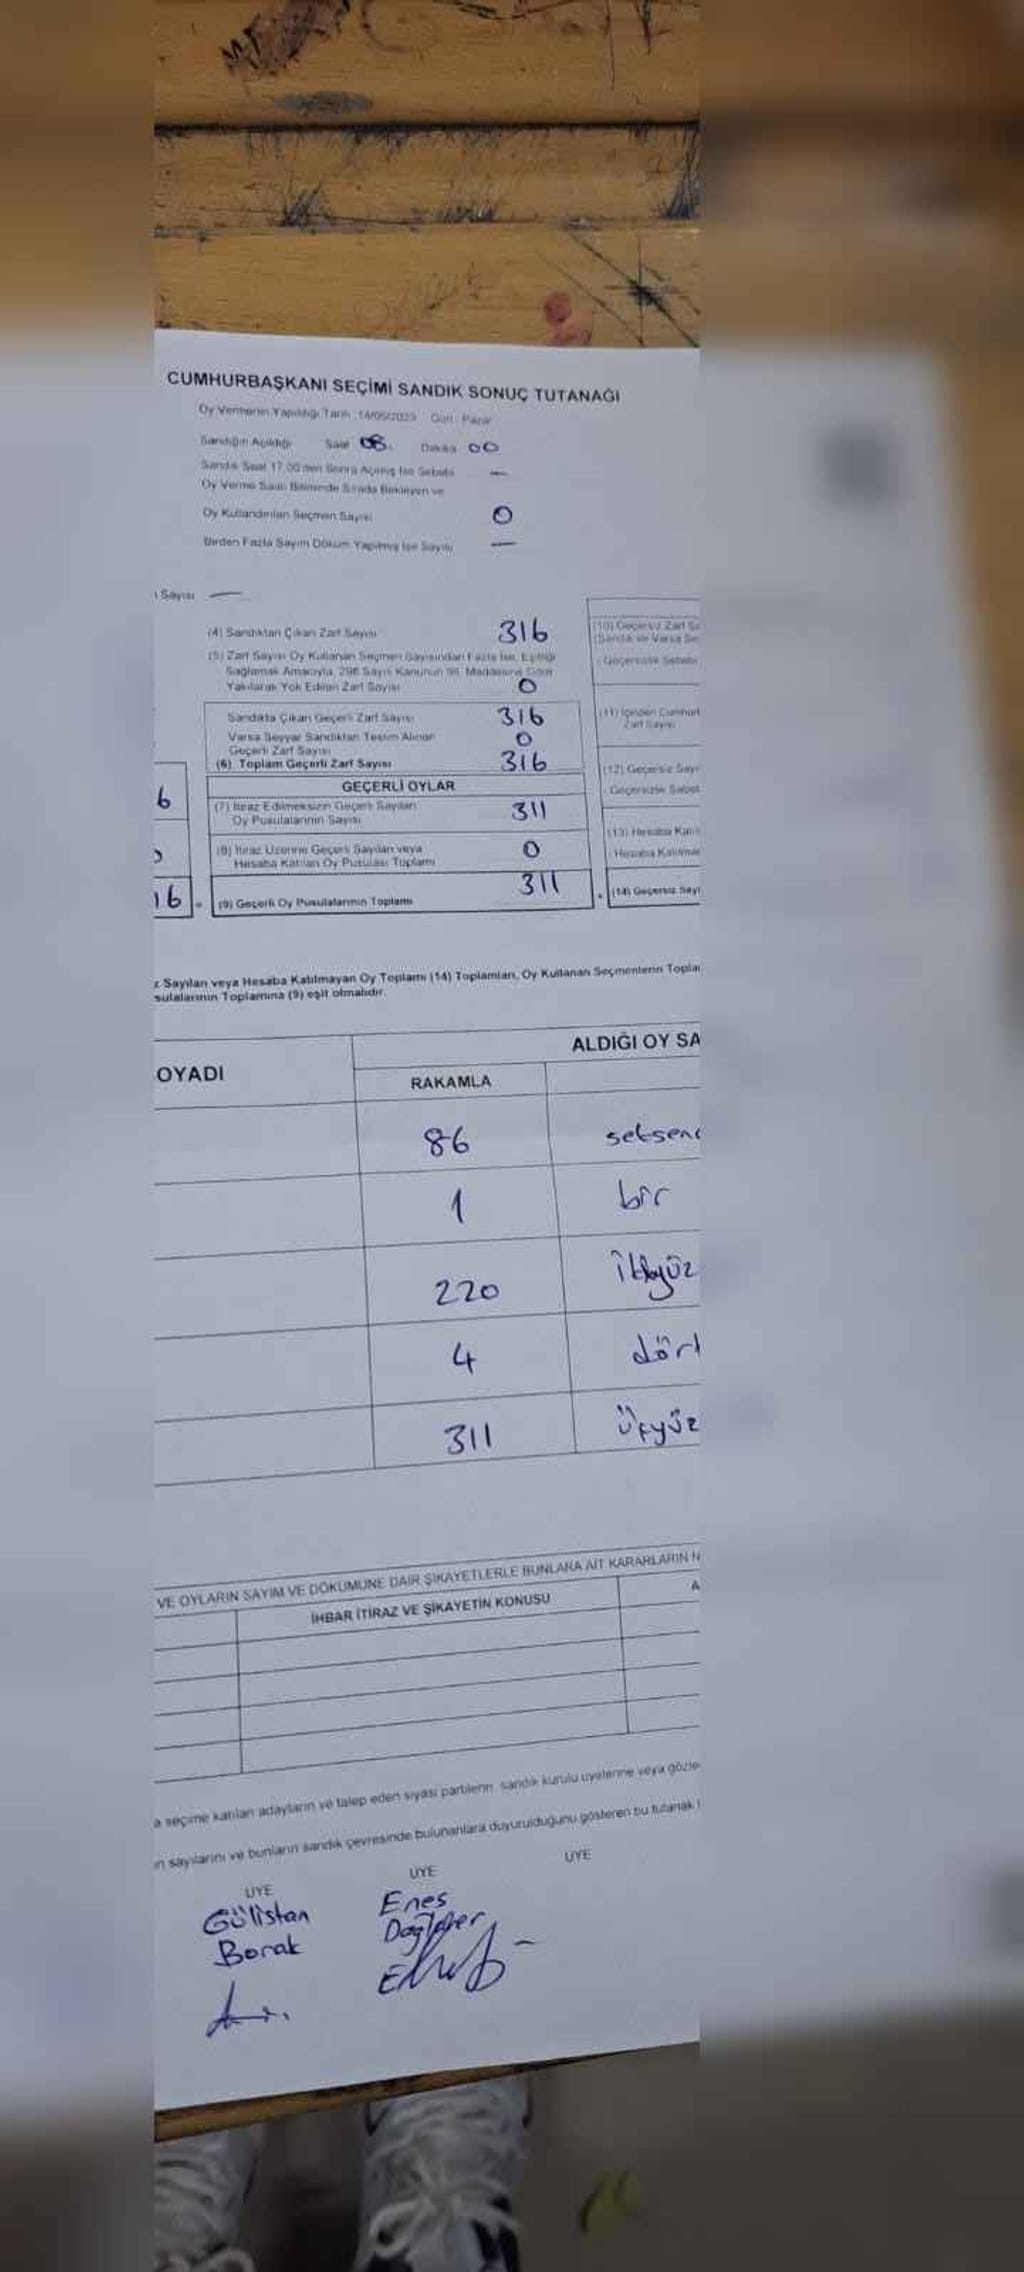 CUMHURBAŞKANI SEÇİMİ SANDIK SONUÇ TUTANAĞI
Oy Vermenin Yapıldığı Tarih : 14/05/2023 Gün : Pazar
Sandığın Açıldığı Saat 08. Dakika 00
Sandık Saat 17.00'den Sonra Açılmış İse Sebebi —
Oy Verme Saati Bitiminde Sırada Bekleyen ve
Oy Kullandırılan Seçmen Sayısı 0
Birden Fazla Sayım Döküm Yapılmış İse Sayısı —
Sayısı —
(4) Sandıktan Çıkan Zarf Sayısı 316
(5) Zarf Sayısı Oy Kullanan Seçmen Sayısından Fazla İse, Eşitliği
Sağlamak Amacıyla, 298 Sayılı Kanunun 98. Maddesine Göre
Yakılarak Yok Edilen Zarf Sayısı 0
Sandıkta Çıkan Geçerli Zarf Sayısı 316
Varsa Seyyar Sandıktan Teslim Alınan
Geçerli Zarf Sayısı 0
(6) Toplam Geçerli Zarf Sayısı 316
GEÇERLİ OYLAR
6
(7) İtiraz Edilmeksizin Geçerli Sayılan
Oy Pusulalarının Sayısı 311
(8) İtiraz Üzerine Geçerli Sayılan veya
Hesaba Katılan Oy Pusulası Toplamı 0
16
(9) Geçerli Oy Pusulalarının Toplamı 311
(10) Geçersiz Zarf Sa
(Sandık ve Varsa Se
Geçersizlik Sebebi
(11) İçinden Cumhurb
Zarf Sayısı
(12) Geçersiz Sayı
Geçersizlik Sebebi
(13) Hesaba Katıl
Hesaba Katılmam
(14) Geçersiz Sayı
z Sayılan veya Hesaba Katılmayan Oy Toplamı (14) Toplamları, Oy Kullanan Seçmenlerin Topla
sulalarının Toplamına (9) eşit olmalıdır.
OYADI
ALDIĞI OY SA
RAKAMLA
86 seksena
1 bir
220 ikiyüz
4 dört
311 üçyüz
VE OYLARIN SAYIM VE DÖKÜMÜNE DAİR ŞİKAYETLERLE BUNLARA AİT KARARLARIN N
İHBAR İTİRAZ VE ŞİKAYETİN KONUSU
A
a seçime katılan adayların ve talep eden siyasi partilerin sandık kurulu üyelerine veya gözle
ın sayılarını ve bunların sandık çevresinde bulunanlara duyurulduğunu gösteren bu tutanak t
ÜYE ÜYE ÜYE
Gülistan Enes
Borak